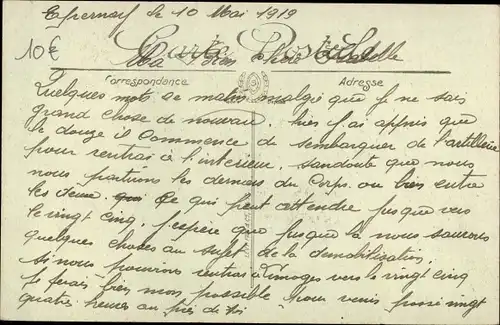 Epernay le 10 Mai 1919
10€
Carte Postale
Ma bien chère
Correspondance
Adresse
Quelques mots ce matin malgré que j ne sais
grand chose de nouveau. hier j'ai appris que
le douze il commence de sembarquer de l'artillerie
pour rentrai à l'interieur, sandoute que nous
nous partirons les derniers du Corps. ou bien entre
les deux. Ce qui peut attendre jusque vers
le vingt cinq. J'espère que jusque là nous saurons
quelques choses au sujet de la demobilisation.
si nous pouvions rentrai à Limoges vers le vingt cinq
je ferais bien mon possible pour venir passé vingt
quatre heures au près de toi